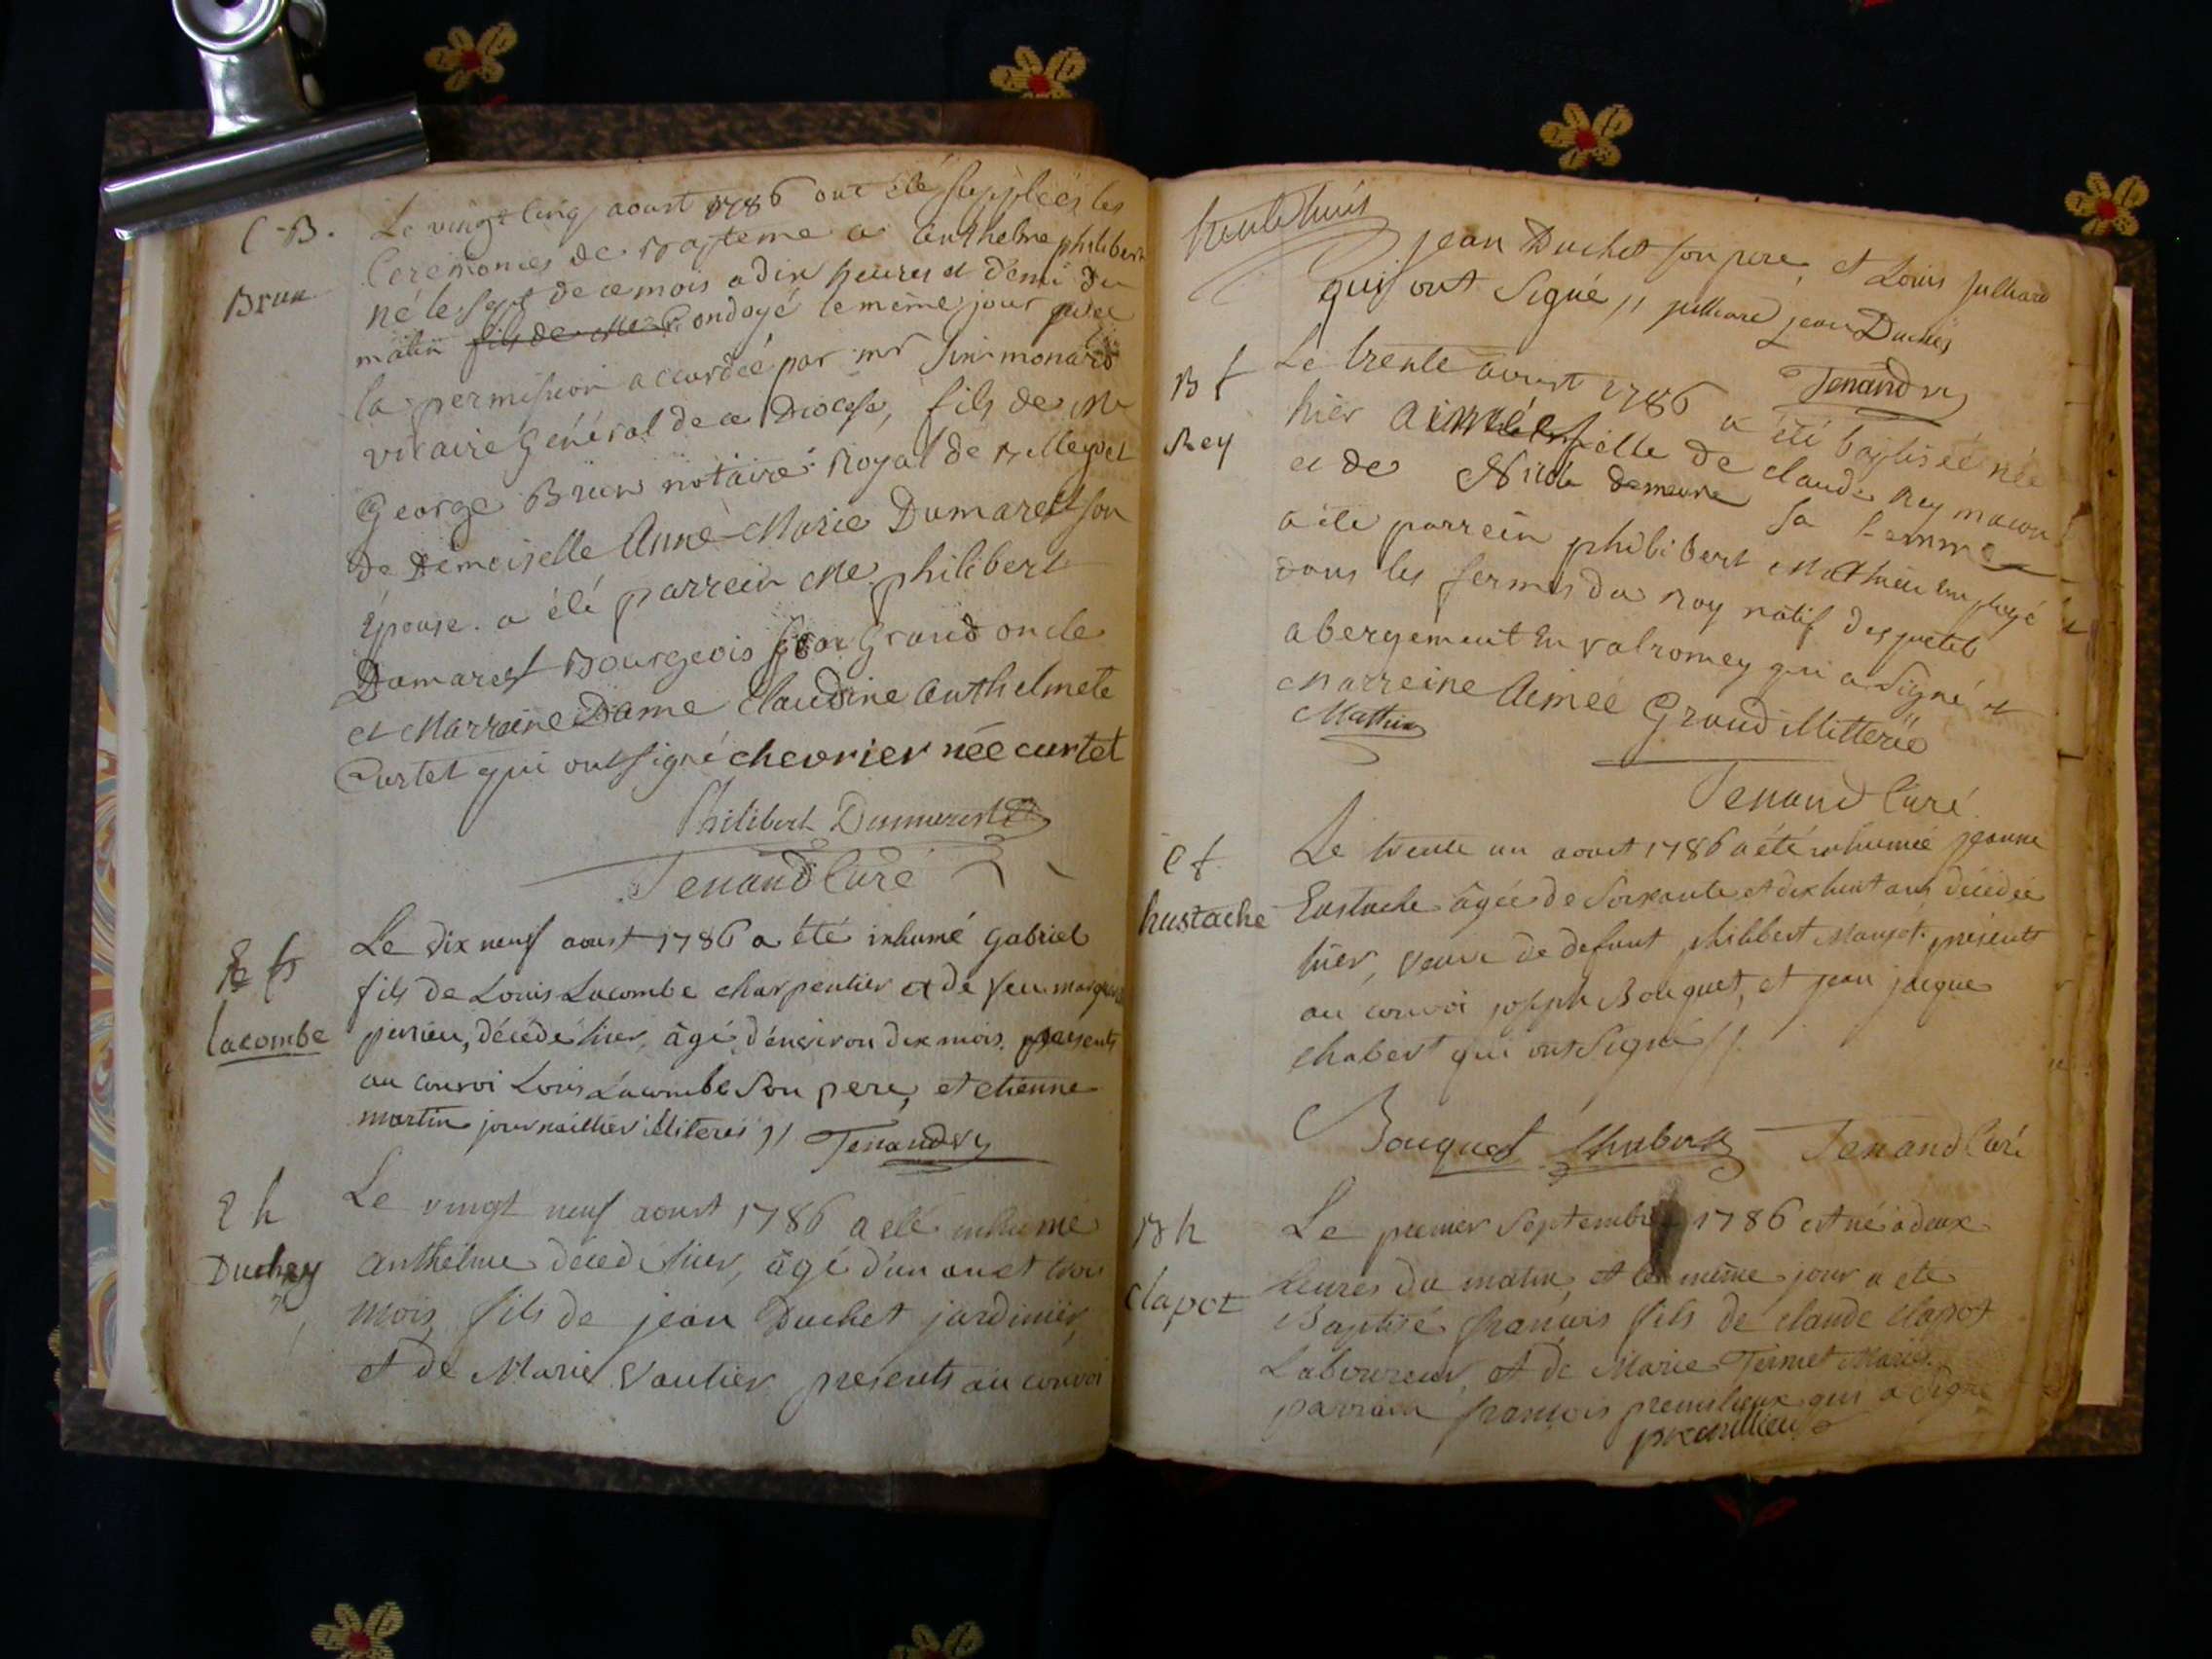 C-B.
Brun
Le vingt cinq aoust 1786 ont été suppleés les
Ceremonies de Bapteme a Anthelme philibert
né le sept de ce mois a dix heures et demi du
matin fils de Me ondoyé le meme jour avec
la permission accordée par mr
vicaire Général de ce Diocese, fils de Me
George Brun notaire Royal de Belley et
de Demoiselle Anne-Marie Dumarest son
Epouse. a été parrein Me philibert
Dumarest Bourgeois son Grand oncle
et Marraine Dame Claudine Anthelmete
Curtet qui ont signé chevrier née curtet
Philibert Dumarest
Tenand Curé
Lacombe
Le dix neuf aoust 1786 a été inhumé Gabriel
fils de Louis Lacombe charpentier et de feu
décédé hier, âgé d'environ dix mois. presents
au convoi Louis Lacombe son pere, et etienne
martin journaillier illiteres // Tenand
E h
Duchey
Le vingt neuf aoust 1786 a eté inhumé
Anthelme déced hier, âgé d'un an et trois
mois, fils de jean Duchet jardinier,
et de Marie Vautier presents au convoi
trente huit
jean Duchet son pere, et Louis Julliard
qui ont Signé // julliard jean Duchey
Tenand
B f
Rey
Le trente aoust 1786 a été baptisée née
hier Aimée fille de claude Rey macon
et de Nicole demeure sa femme
a été parrein philibert Mathieu employé
dans les fermes du Roy natif du petit
abergement en valromey qui a signé et
Marreine Aimée Grand illitterée
Mathieu
Tenand Curé
E f
hustache
Le trente un aoust 1786 a été inhumée jeanne
Eustache âgée de soixante et dix huit ans, décédée
hier, veuve de defunt philibert presents
au convoi joseph Bouquet, et jean jacque
chabert qui ont signé //
Bouquet Chabert Tenand Curé
B h
Clapot
Le premier Septembre 1786 est né a deux
heures du matin, et le même jour a eté
Baptisé francois fils de claude Clapot
Laboureur, et de Marie Ternet Mariés.
parrain francois premilieux qui a signé
premillieux